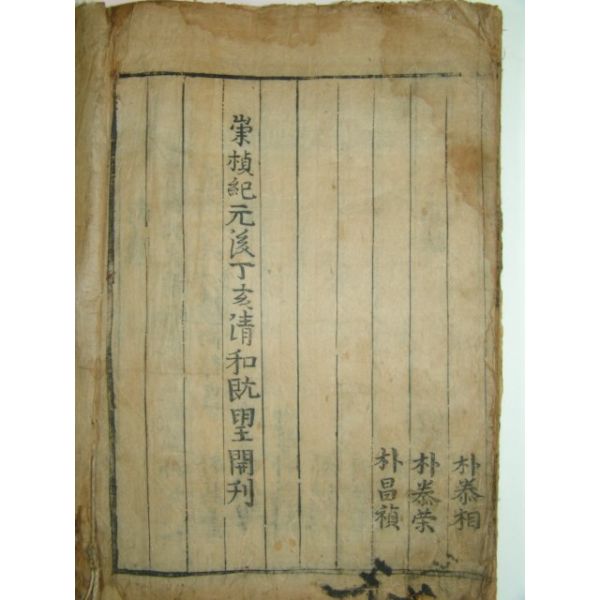 朴泰相
朴泰榮
朴昌禎
崇楨紀元後丁亥清和旣望開刊